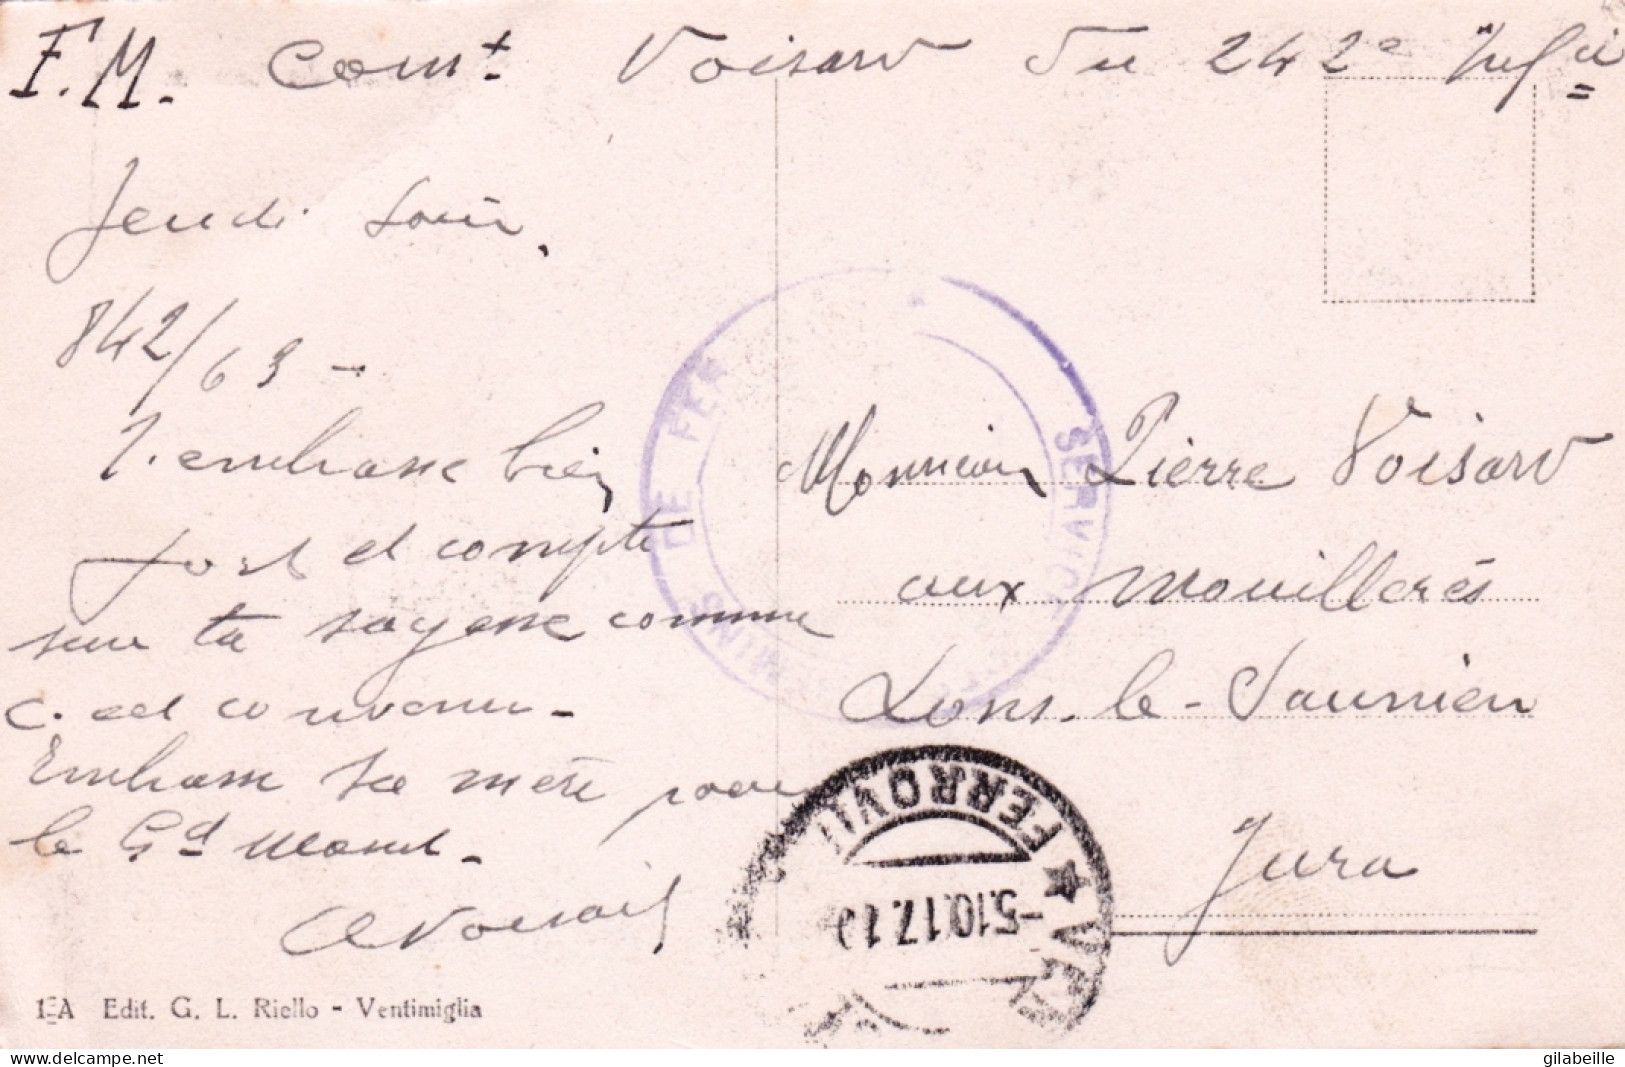 F.M. Comt Voisard du 242e Infie
Jeudi soir,
842/63 -
T'embrasse bien
fort et compte
sur ta sagesse comme
c. est convenu -
Embrasse ta mère pour
le Gd Mont -
AVoisard
Monsieur Pierre Voisard
aux Mouillerés
Lons-le-Saunier
Jura
SERVICE
DE FER
FERROVIA
-5.10.17.1
Edit. G. L. Riello - Ventimiglia
https://www.delcampe.net
gilabeille